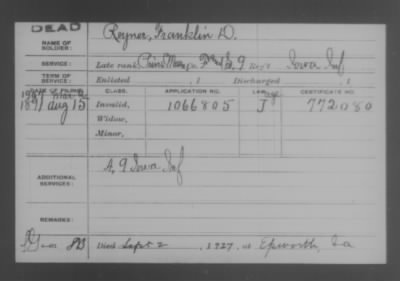 DEAD
NAME OF SOLDIER: Reyner, Franklin D.
SERVICE: Late rank, Co. 9 Reg't Iowa Inf
TERM OF SERVICE: Enlisted , 1 Discharged , 1
DATE OF FILING. CLASS. APPLICATION NO. LAW. CERTIFICATE NO.
1891 Aug 15 Invalid, 1066805 J 772080
Widow,
Minor,
ADDITIONAL SERVICES: A, 9 Iowa Inf
REMARKS:
Died Sept 2, 1927, at Epworth, Ia